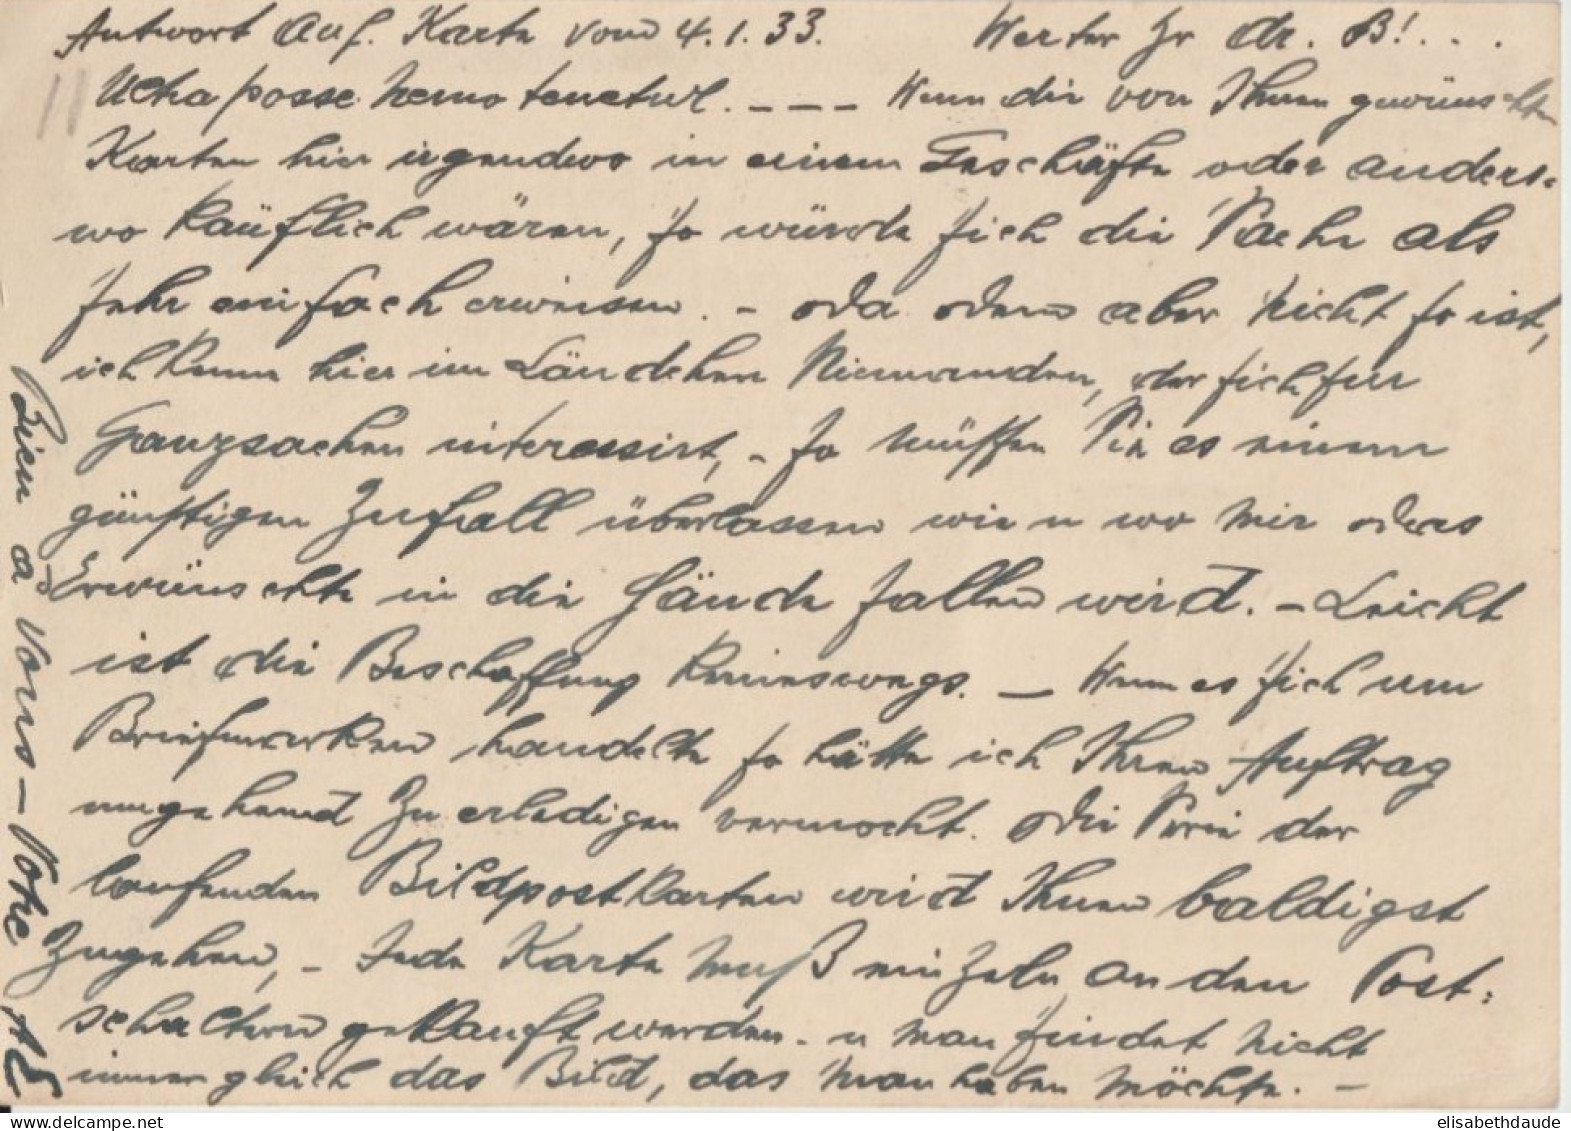 Antwort auf. Karte vom 4.1.33. Werter Hr Dr. B! . . .
Ultra posse nemo tenetur. – – – Wenn die von Ihnen gewünschten
Karten hier irgendwo in einem Geschäfte oder anders-
wo käuflich wären, so würde sich die Sache als
sehr einfach erweisen. – da dem aber nicht so ist,
ich kenne hier im Ländchen Niemanden, der sich für
Ganzsachen interessirt, – so müssen Sie es einem
günstigen Zufall überlassen wie u wo mir das
Erwünschte in die Hände fallen wird. – Leicht
ist die Beschaffung keineswegs. – Wenn es sich um
Briefmarken handelte so hätte ich Ihren Auftrag
umgehend zu erledigen vermocht. Die Serie der
laufenden Bildpostkarten wird Ihnen baldigst
zugehen, – Jede Karte muß einzeln an den Post-
schaltern gekauft werden. u man findet nicht
immer gleich das Bild, das man haben möchte. –
Bien a vous –